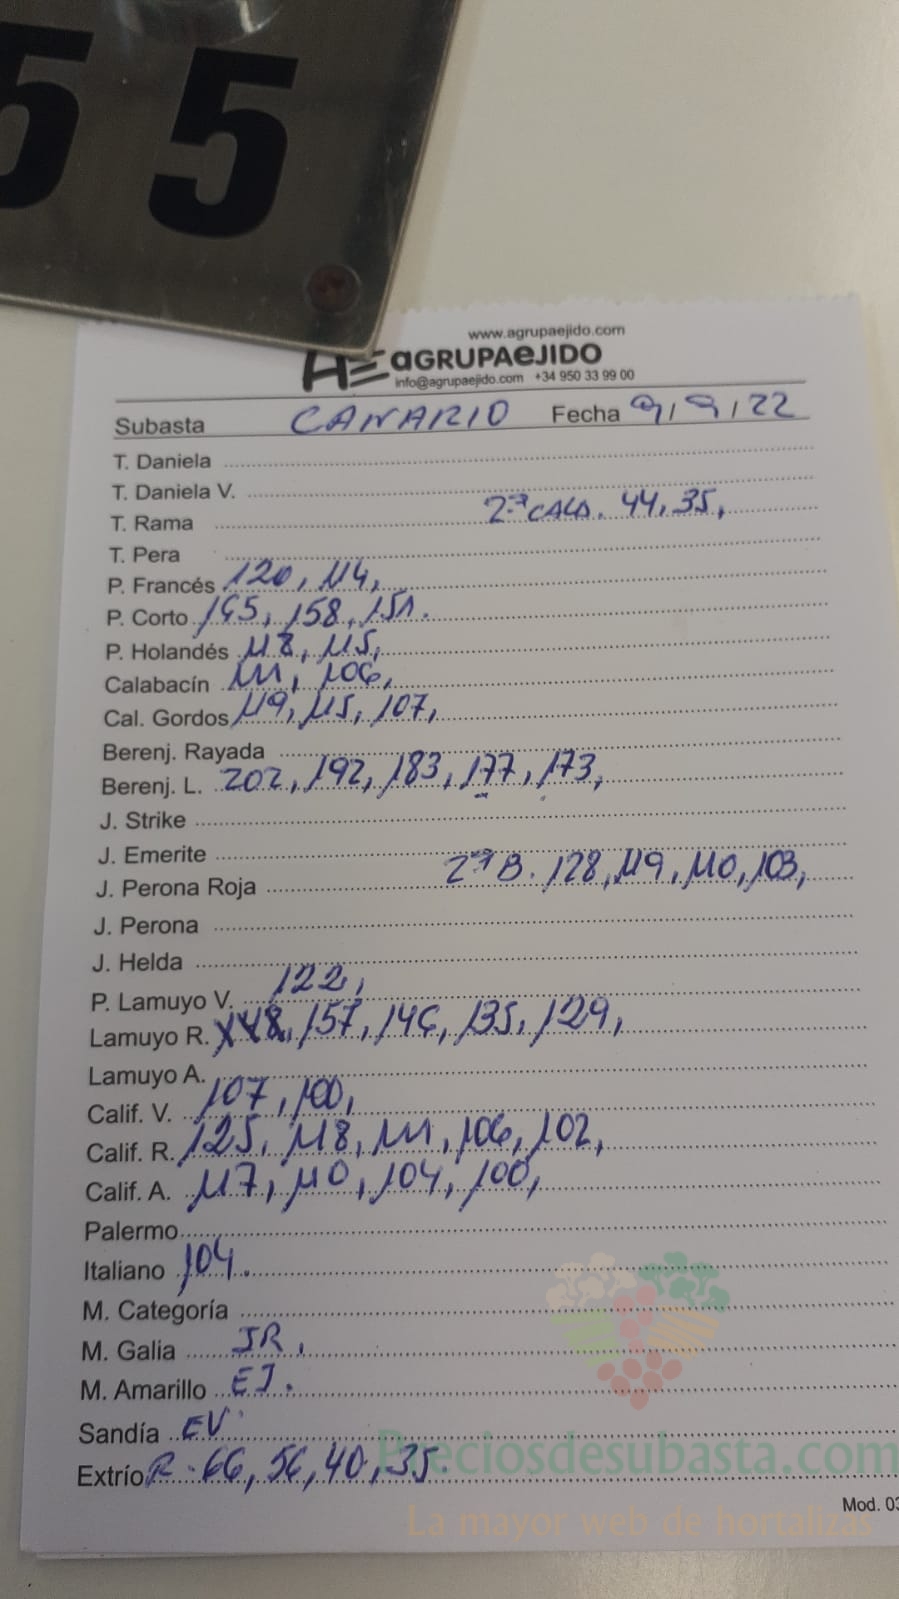 55
www.agrupaejido.com
AGRUPAEJIDO
info@agrupaejido.com +34 950 33 99 00
Subasta CANARIO Fecha 9/9/22
T. Daniela
T. Daniela V.
T. Rama 2ª CALA. 44, 35,
T. Pera
P. Francés 120, 114,
P. Corto 165, 158, 151.
P. Holandés 118, 115,
Calabacín 111, 106,
Cal. Gordos 119, 115, 107,
Berenj. Rayada
Berenj. L. 202, 192, 183, 177, 173,
J. Strike
J. Emerite
J. Perona Roja 2ª B. 128, 119, 110, 103,
J. Perona
J. Helda
P. Lamuyo V. 122,
Lamuyo R. 157, 146, 135, 129,
Lamuyo A.
Calif. V. 107, 100,
Calif. R. 125, 118, 111, 106, 102,
Calif. A. 117, 110, 104, 100,
Palermo
Italiano 104.
M. Categoría
M. Galia JR,
M. Amarillo EJ.
Sandía EV
Extrío R. 66, 56, 40, 35.
Preciosdesubasta.com
La mayor web de hortalizas
Mod. 03